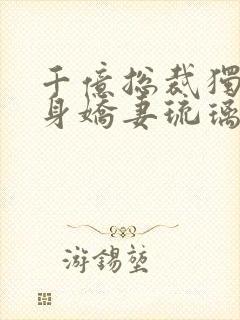 千億總裁獨
身嬌妻琉璃
游錫堃